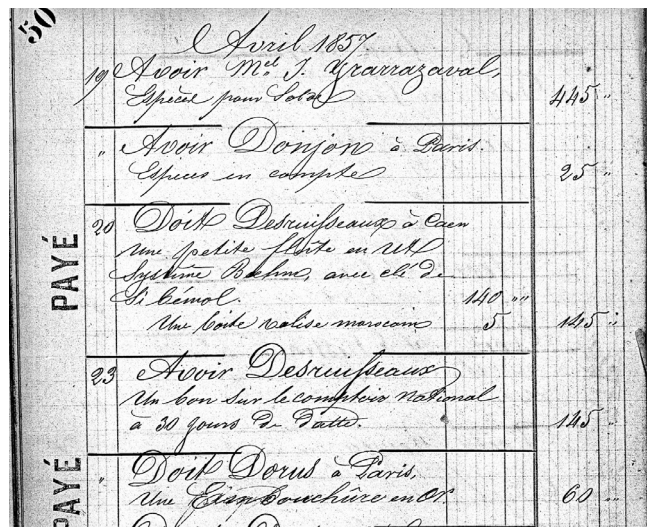 50
Avril 1857.
19 Avoir Mel J. Yrarrazaval,
Espèces pour Solde 445 "
" Avoir Donjon à Paris.
Espèces en compte 25 "
PAYÉ
20 Doit Desruisseaux à Caen
Une petite flûte en Ut
Système Bœhm, avec clé de
Si bémol. 140 ""
Une boîte valise marocain 5 145 "
23 Avoir Desruisseaux
Un bon sur le comptoir National
à 30 jours de datte. 145 "
PAYÉ
" Doit Dorus à Paris,
Une Embouchûre en Or. 60 "